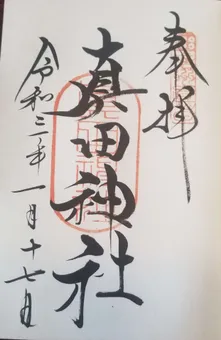 奉拝
真田神社
令和三年一月十七日